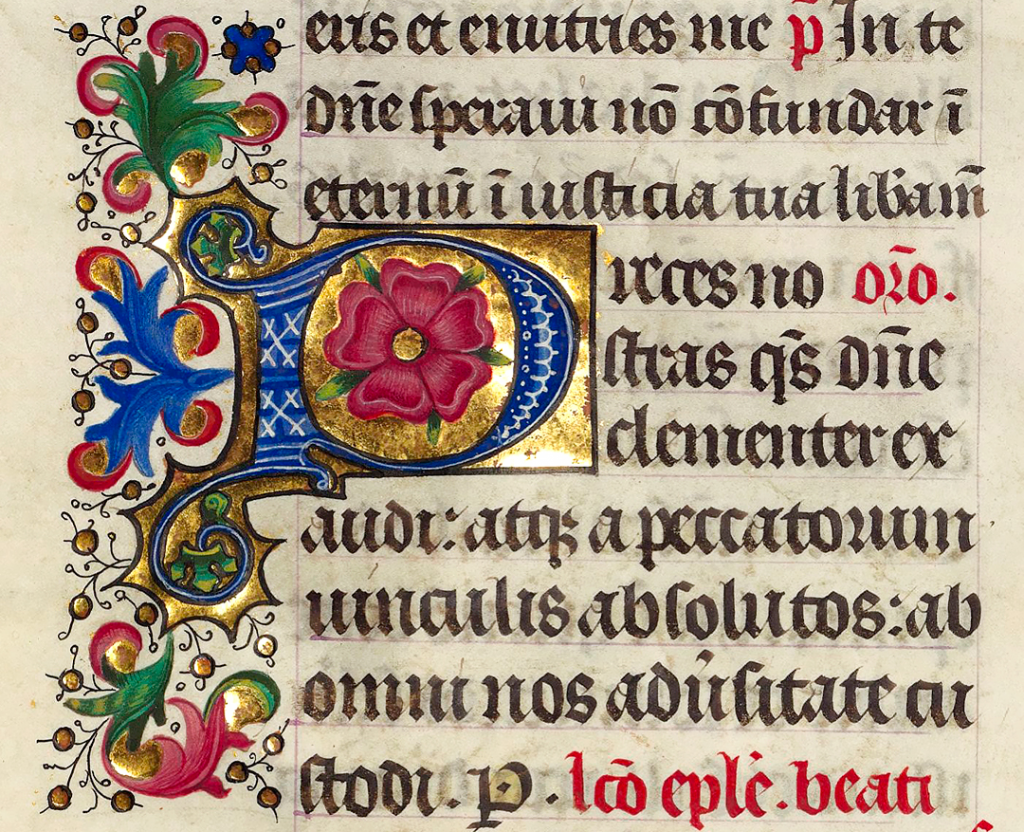 eris et enutries me p̄ In te
dn̄e speraui nō cōfundar ī
eternū ī iusticia tua lib̓am̄
Preces no orō.
stras qs̄ dn̄e
clementer ex
audi: atqꝫ a peccatorum
uinculis absolutos: ab
omni nos adūsitate cu
stodi. P. lcō eplē. beati